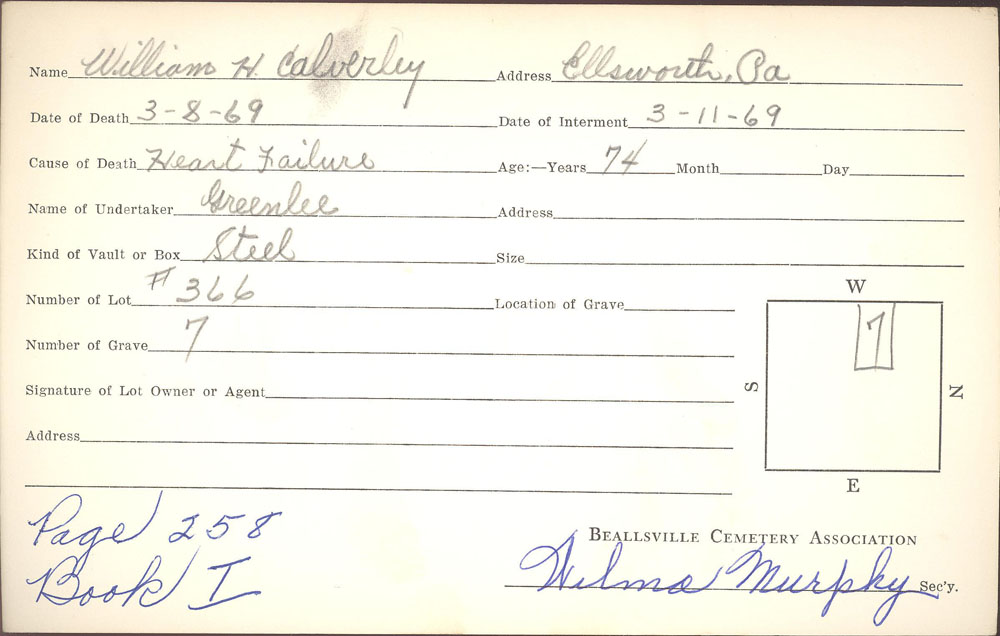 Name William H. Calverley Address Ellsworth, Pa
Date of Death 3-8-69 Date of Interment 3-11-69
Cause of Death Heart Failure Age:—Years 74 Month Day
Name of Undertaker Greenlee Address
Kind of Vault or Box Steel Size
Number of Lot # 366 Location of Grave
Number of Grave 7
Signature of Lot Owner or Agent
Address
W
7
S
N
E
Page 258
Book I
Beallsville Cemetery Association
Wilma Murphy Sec'y.